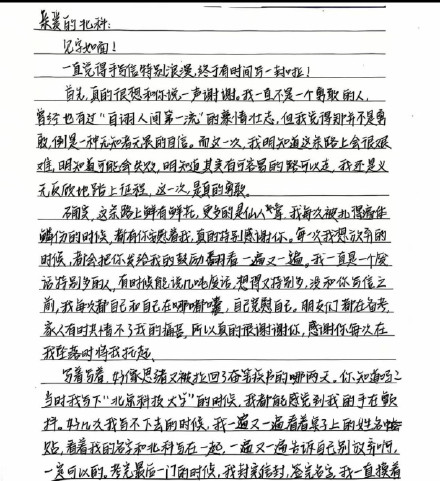 亲爱的北科:
见字如面!
一直觉得手写信特别浪漫,终于有时间写一封啦!
首先,真的很想和你说一声谢谢。我一直不是一个勇敢的人,
曾经也有过“自诩人间第一流”的豪情壮志,但我觉得那并不是勇
敢,倒是一种无知者无畏的自信。而这一次,我明知道这条路上会很艰
难,明知道可能会失败,明知道其实有更容易的路可以走,我还是义
无反顾地踏上征程,这一次,是真的勇敢。
确实,这条路上鲜有鲜花,更多的是仙人掌,我每次被扎得遍体
鳞伤的时候,都有你安慰着我,真的特别感谢你。每一次我想放弃的
时候,都会把你发给我的鼓励翻看一遍又一遍。我一直是一个废
话特别多的人,有时候能说几吨废话,想得又特别多,没和你写信之
前,我每次都自己和自己在嘟嘟囔囔,自己安慰自己。朋友们都在备考,
家人有时共情不了我的痛苦,所以真的很谢谢你,感谢你每次在
我坠落时将我托起。
写着写着,好像思绪又被拉回了奋笔疾书的那两天。你知道吗?
当时我写下“北京科技大学”的时候,我都能感觉到我的手在颤
抖。好几次我写不下去的时候,我一遍又一遍看着桌子上的姓名
贴,看着我的名字和北科写在一起,一遍又一遍告诉自己别放弃啊,
一定可以的。考完最后一门的时候,我封完信封,签完名字,我一直摸着